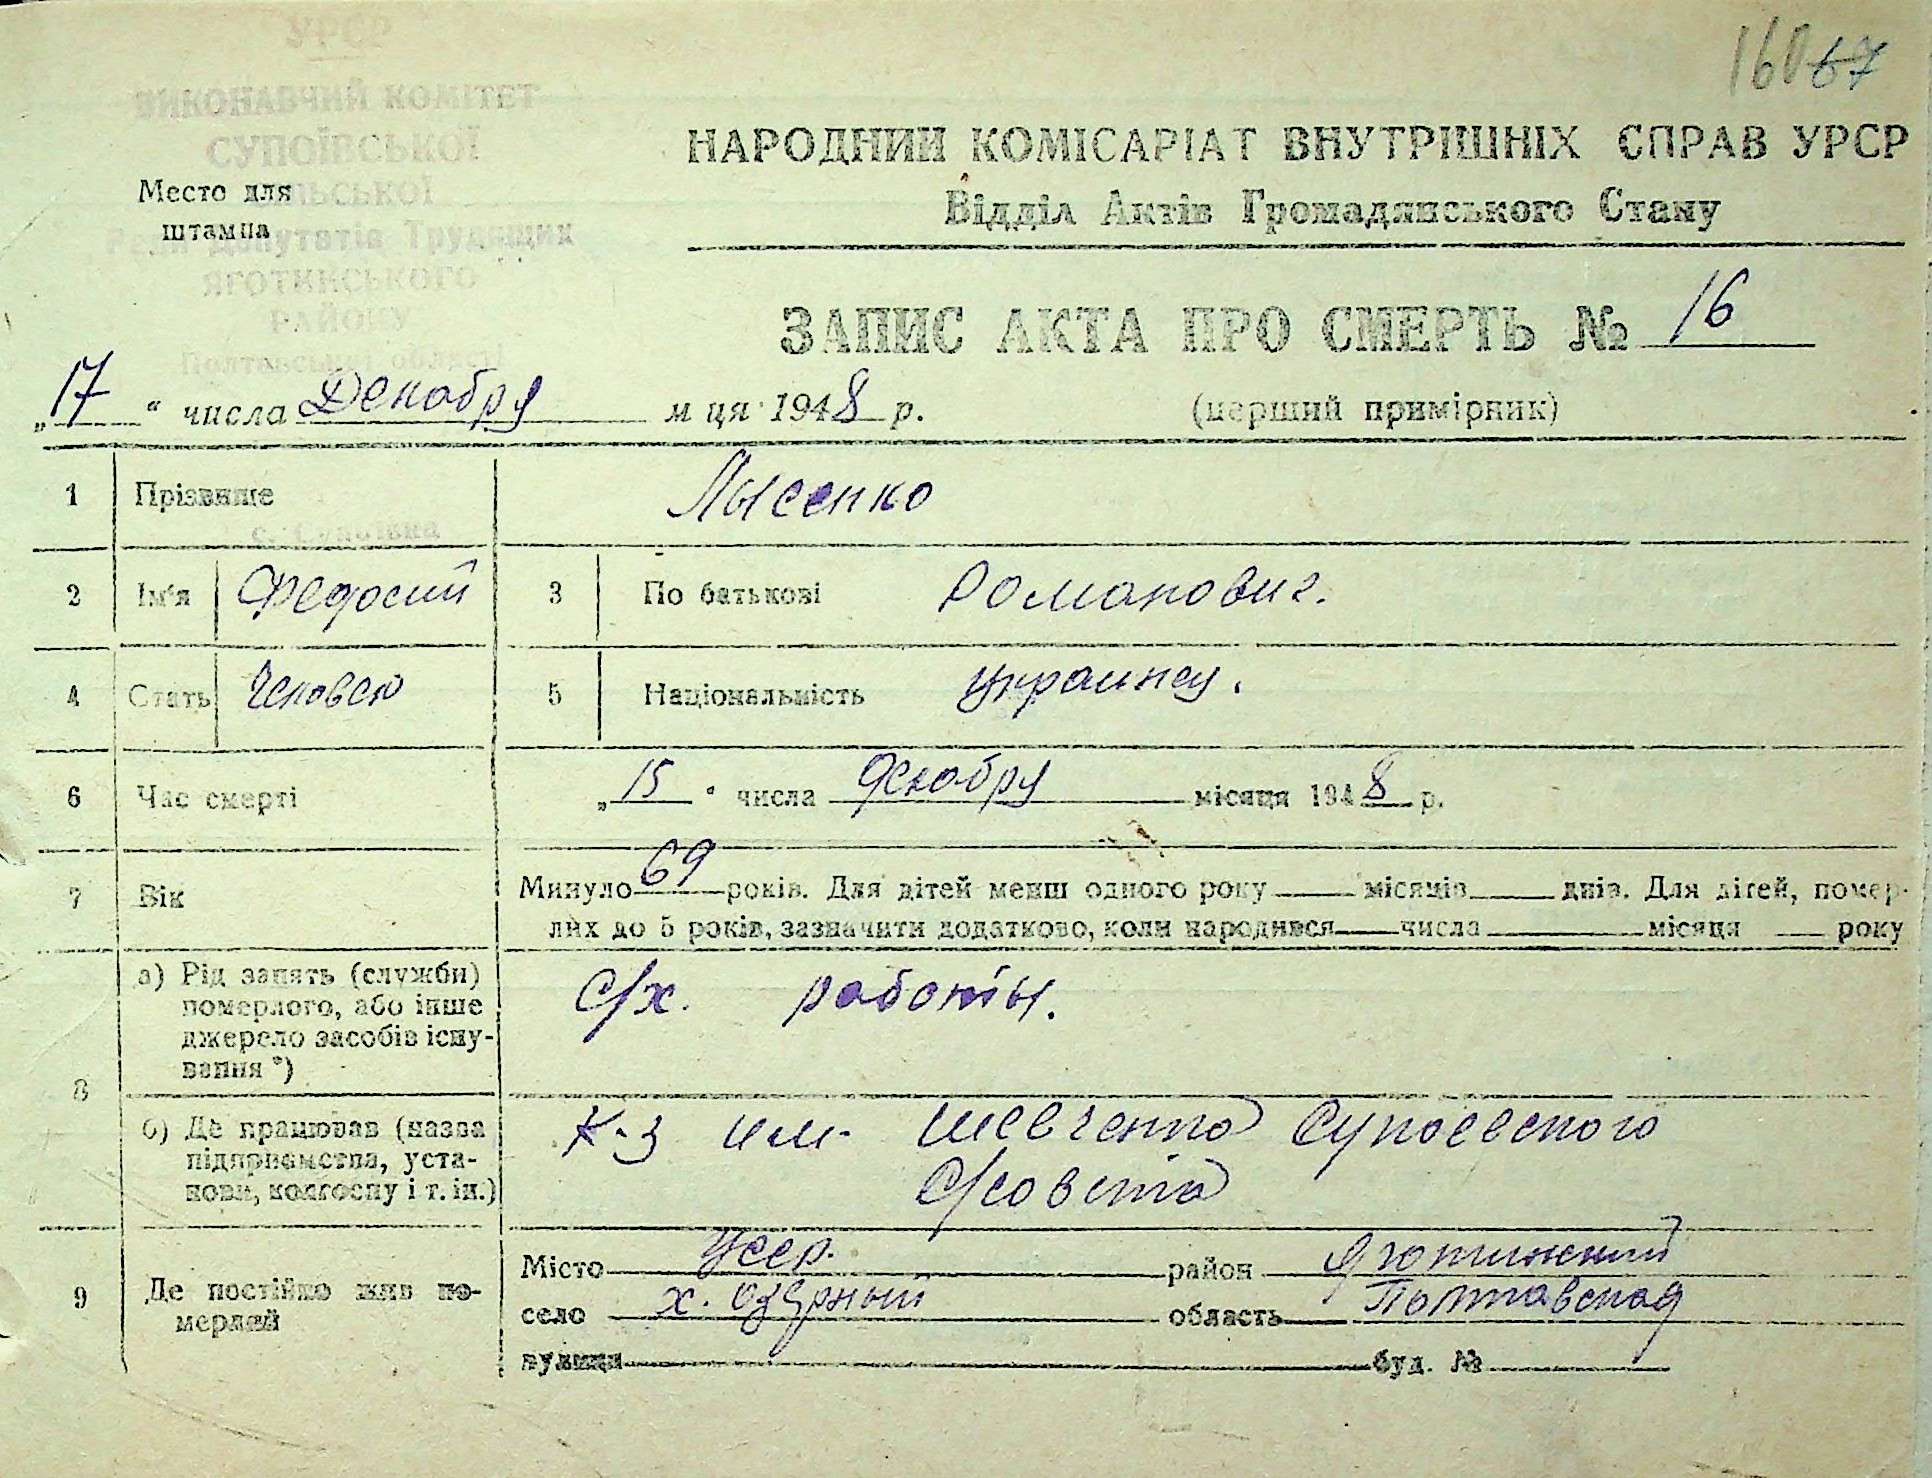 160 67
УРСР
ВИКОНАВЧИЙ КОМІТЕТ
СУПОЇВСЬКОЇ
СІЛЬСЬКОЇ
Ради Депутатів Трудящих
ЯГОТИНСЬКОГО
РАЙОНУ
Полтавської області
с. Супоївка
Место для
штампа
НАРОДНИЙ КОМІСАРІАТ ВНУТРІШНІХ СПРАВ УРСР
Відділ Актів Громадянського Стану
ЗАПИС АКТА ПРО СМЕРТЬ № 16
„17“ числа Декабря м ця 1948 р. (перший примірник)
1 Прізвище Лысенко
2 Ім'я Федосий 3 По батькові Романович.
4 Стать Человек 5 Національність украинец.
6 Час смерті „15“ числа декабря місяця 1948 р.
7 Вік Минуло 69 років. Для дітей менш одного року місяців днів. Для дітей, помер-
лих до 5 років, зазначити додатково, коли народився числа місяця року
8 а) Рід занять (служби)
померлого, або інше
джерело засобів існу-
вання *)
С/х. работы.
б) Де працював (назва
підприємства, уста-
нови, колгоспу і т. ін.)
К-з им. Шевченко Супоевского
С/совета
9 Де постійно жив по-
мерлий
Місто Усср. район Яготинский
село х. Озерный область Полтавская
вулиця буд. №